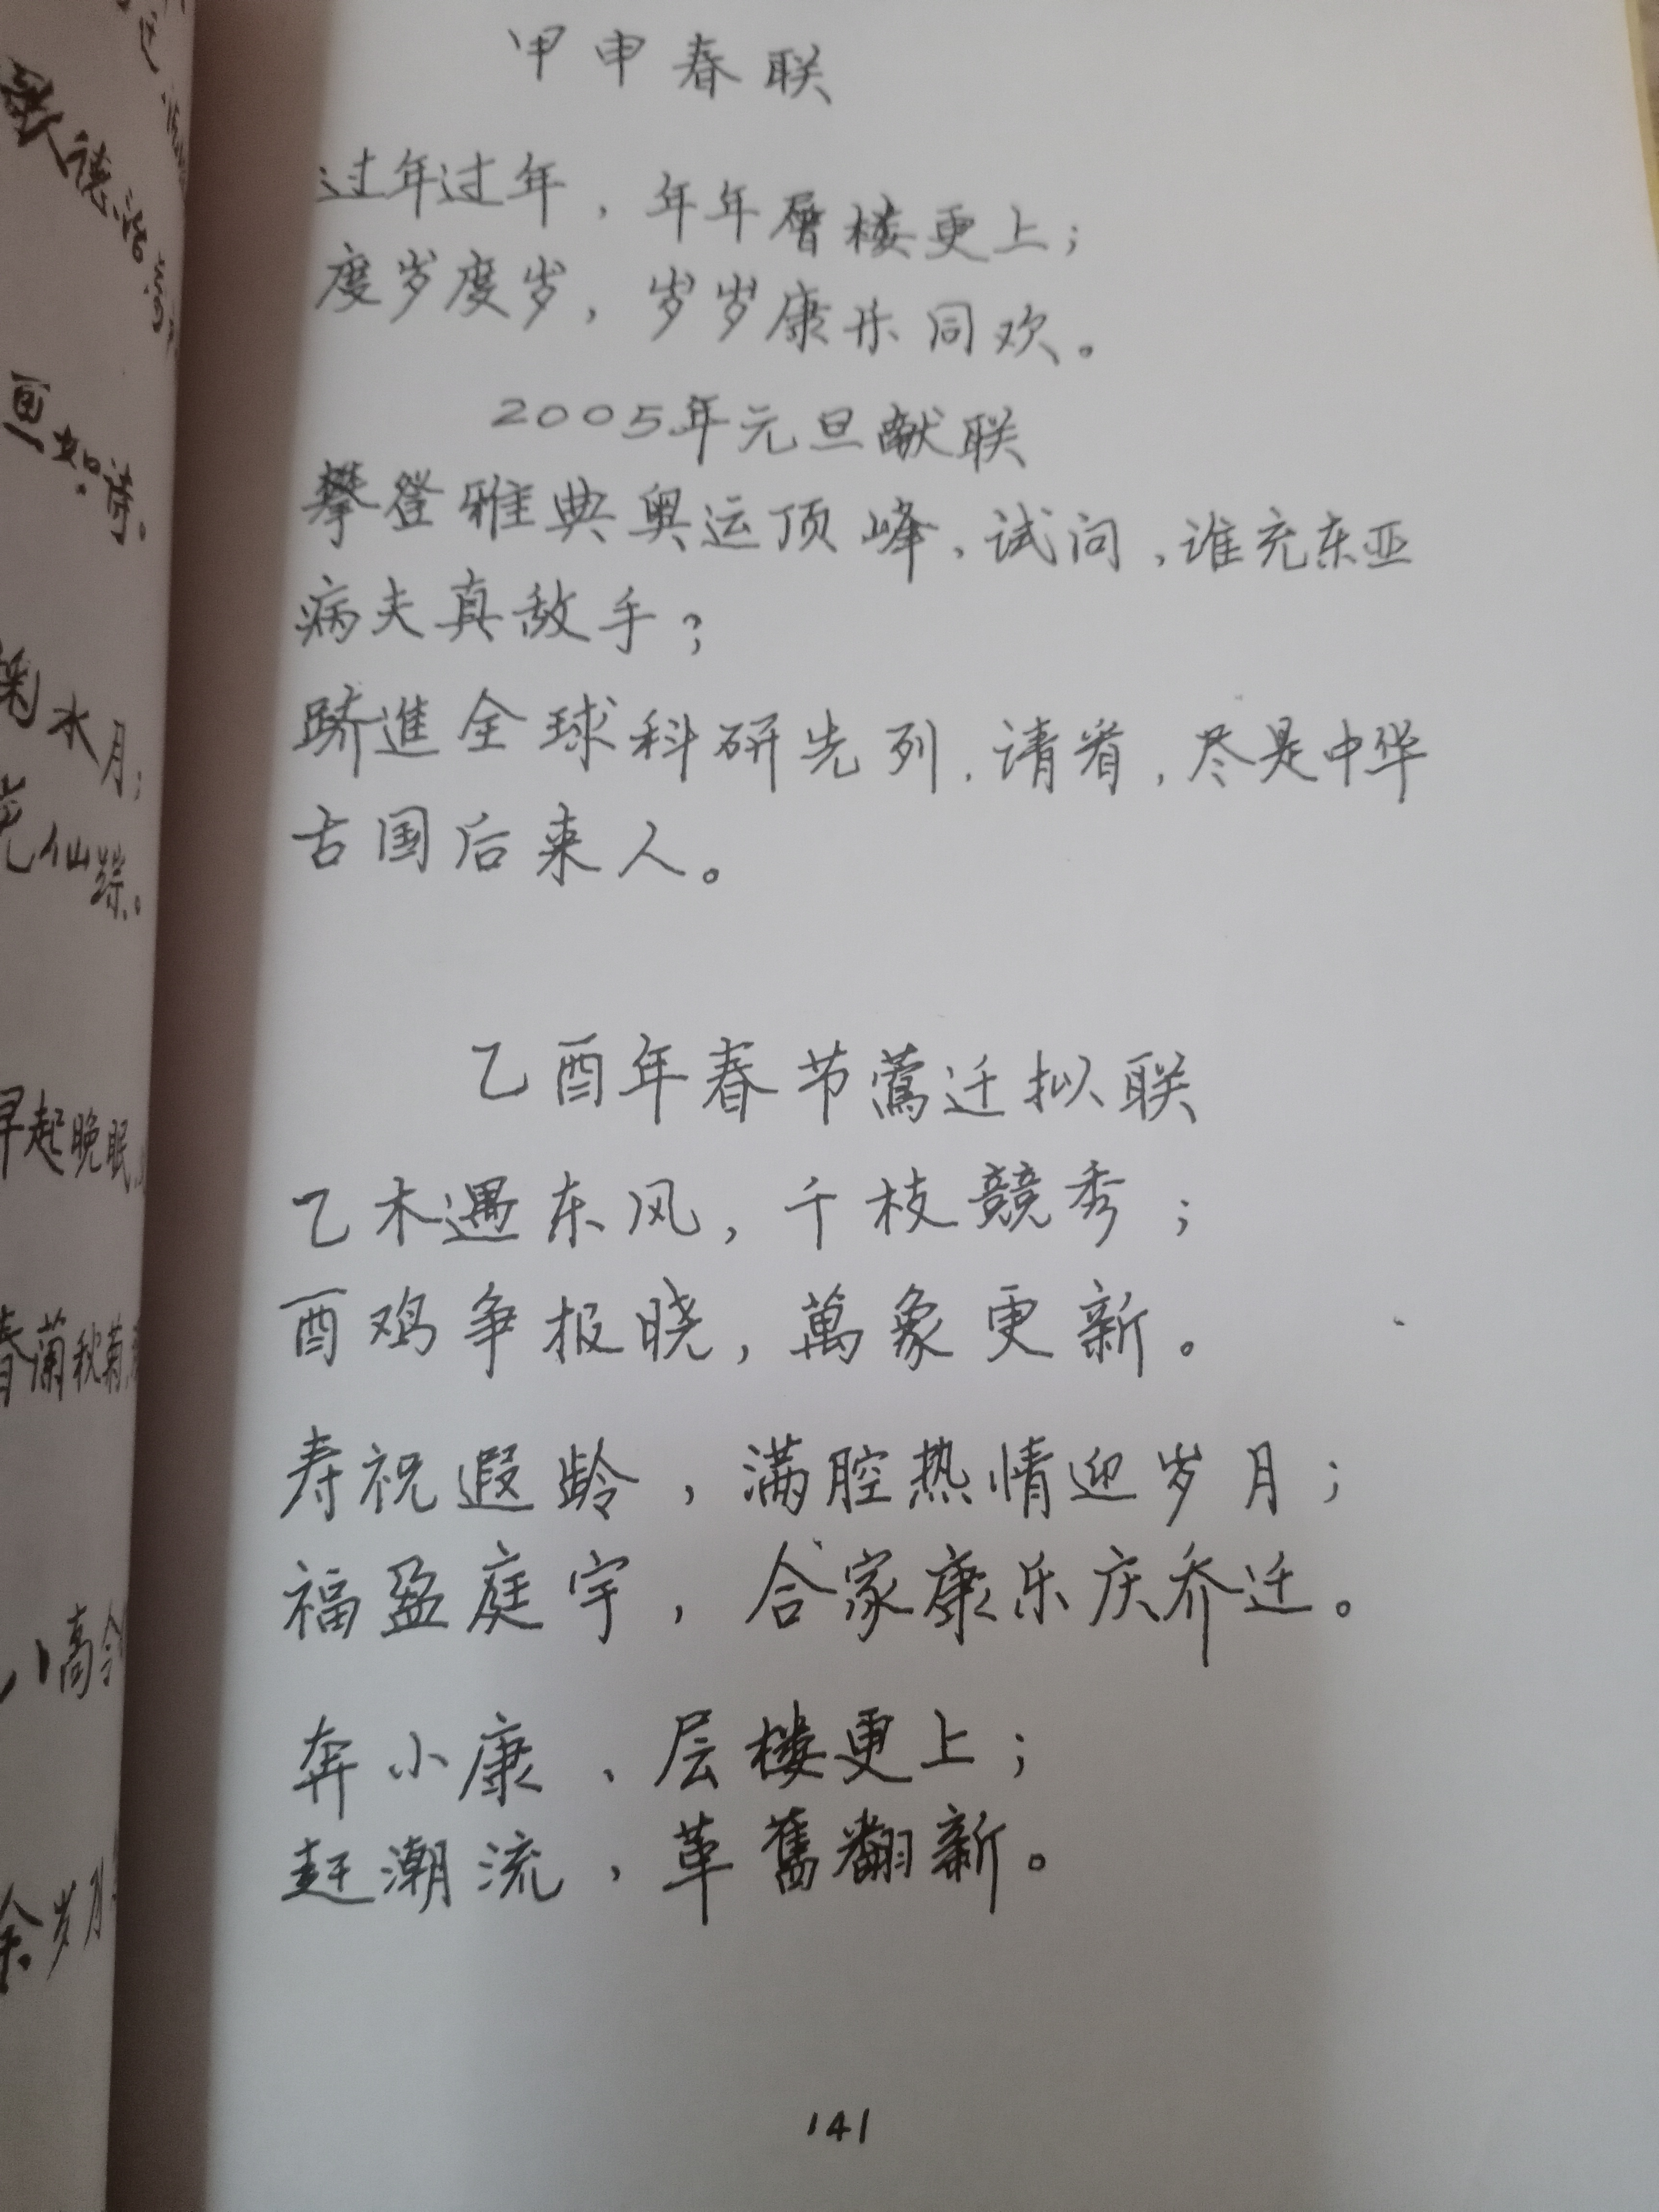 甲申春联
过年过年，年年層楼更上；
度岁度岁，岁岁康乐同欢。
2005年元旦献联
攀登雅典奥运顶峰，试问，谁充东亚
病夫真敌手？
跻進全球科研先列，请看，尽是中华
古国后来人。
乙酉年春节莺迁拟联
乙木遇东风，千枝競秀；
酉鸡争报晓，萬象更新。
寿祝遐龄，满腔热情迎岁月；
福盈庭宇，合家康乐庆乔迁。
奔小康、层楼更上；
赶潮流，革舊翻新。
141
德浩
画如诗。
水月；
仙踪。
早起晚眠
春蘭秋菊
高
余岁月